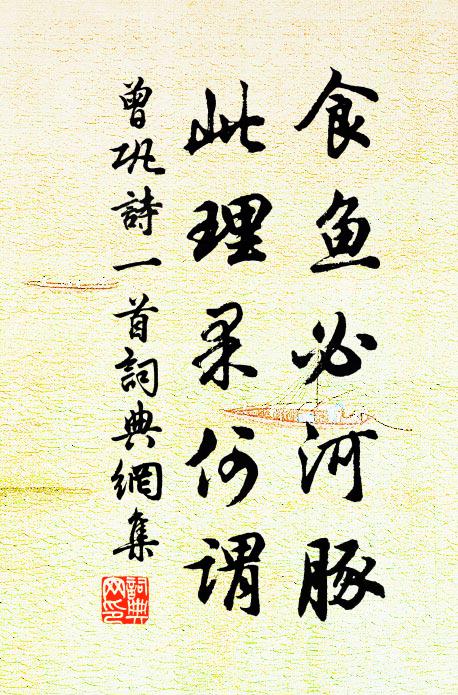 食鱼必河豚
此理果何谓
曾巩詩一首詞典網集
詞典网印